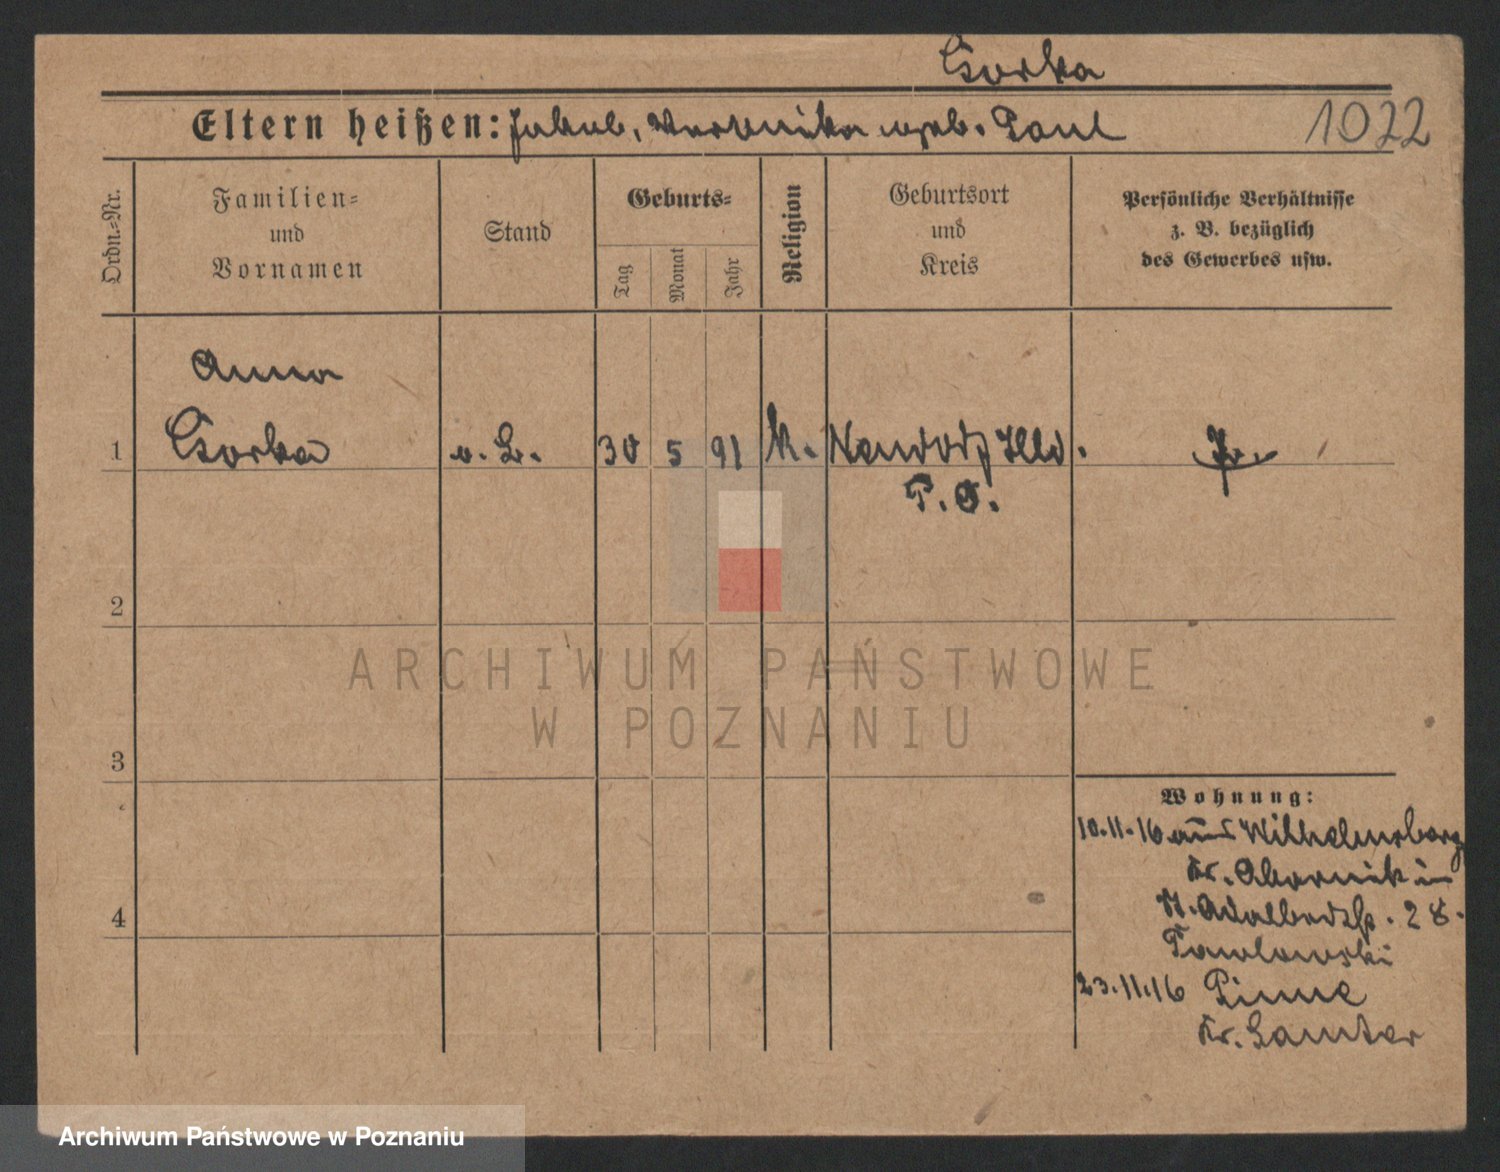 Gorka
Eltern heißen: Jakub, Veronika geb. Paul
1022
Ordn.-Nr.
Familien-
und
Vornamen
Stand
Geburts-
Tag
Monat
Jahr
Religion
Geburtsort
und
Kreis
Persönliche Verhältnisse
z. B. bezüglich
des Gewerbes usw.
Anna
1 Gorka 30 5 91 k. Neudorf
P. O.
2
ARCHIWUM PAŃSTWOWE
W POZNANIU
3
Wohnung:
10.11.16 aus Wilhelmsberg
Kr. Obornik in
St. Adalbertstr. 28.
Pawlowski
4
23.11.16 Pinne
Kr. Samter
Archiwum Państwowe w Poznaniu